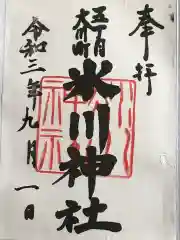 奉拝
五丁目
大川町
氷川神社
令和三年九月一日